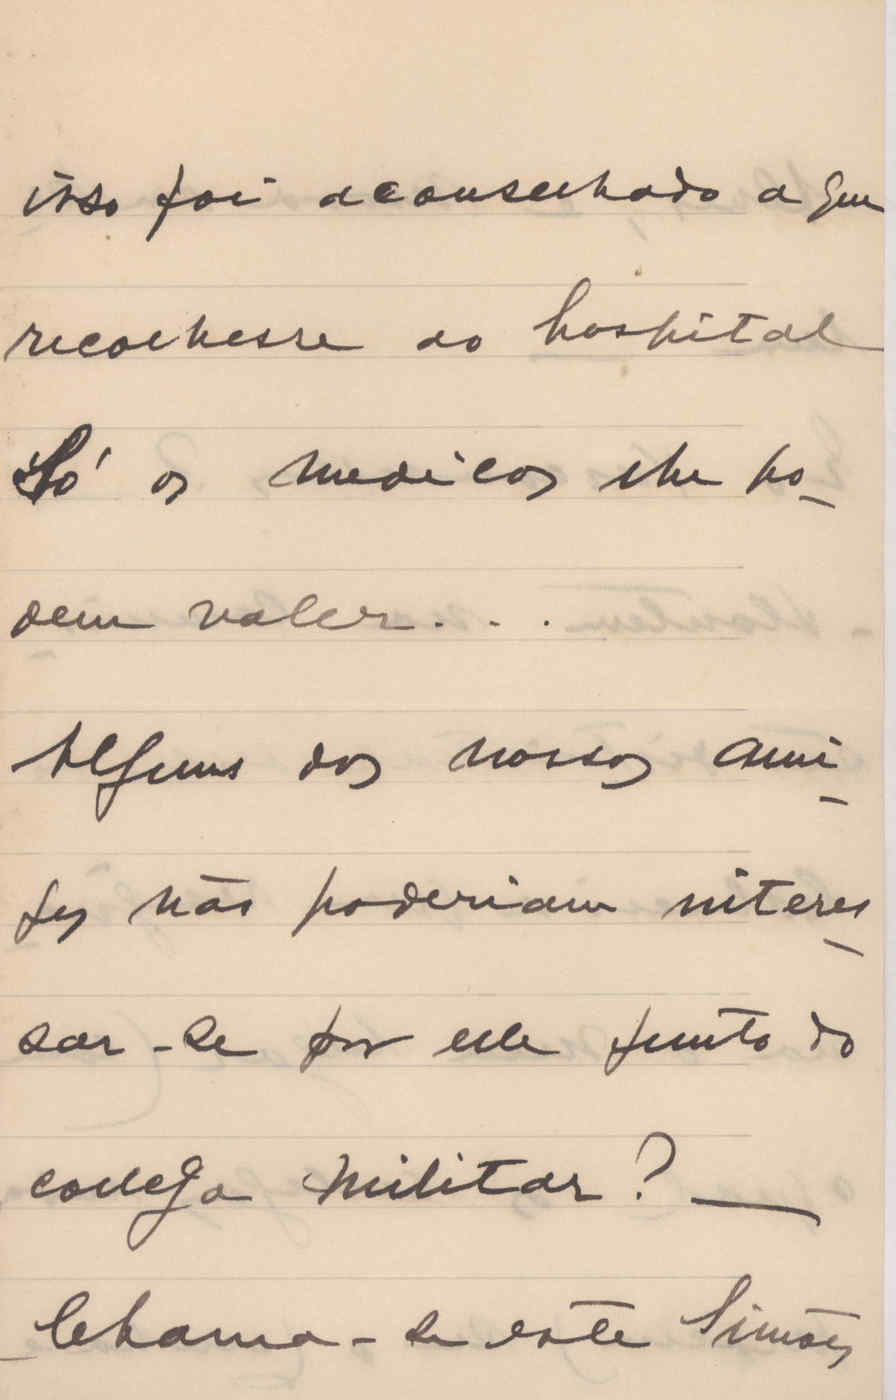 isso foi aconselhado a que
recolhesse ao hospital
Só os medicos lhe po-
dem valer...
Alguns dos nossos ami-
gos não poderiam interes-
sar-se por elle junto do
collega militar? —
Chama-se este Simões